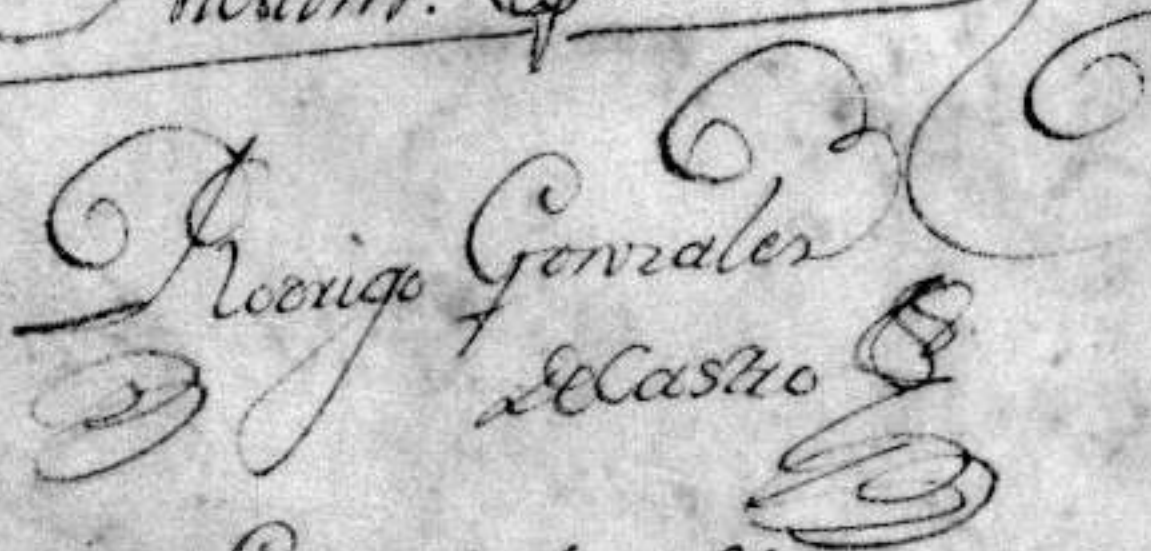 Rodrigo Gonzales
de Castro